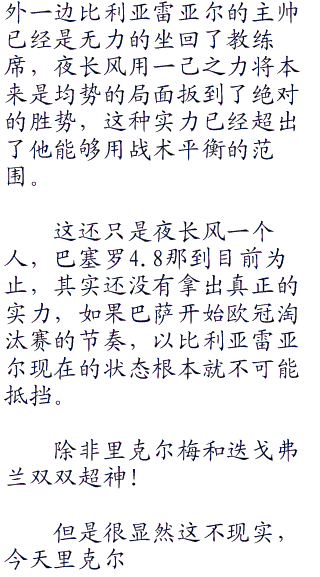 外一边比利亚雷亚尔的主帅
已经是无力的坐回了教练
席，夜长风用一己之力将本
来是均势的局面扳到了绝对
的胜势，这种实力已经超出
了他能够用战术平衡的范
围。
这还只是夜长风一个
人，巴塞罗4.8那到目前为
止，其实还没有拿出真正的
实力，如果巴萨开始欧冠淘
汰赛的节奏，以比利亚雷亚
尔现在的状态根本就不可能
抵挡。
除非里克尔梅和迭戈弗
兰双双超神！
但是很显然这不现实，
今天里克尔